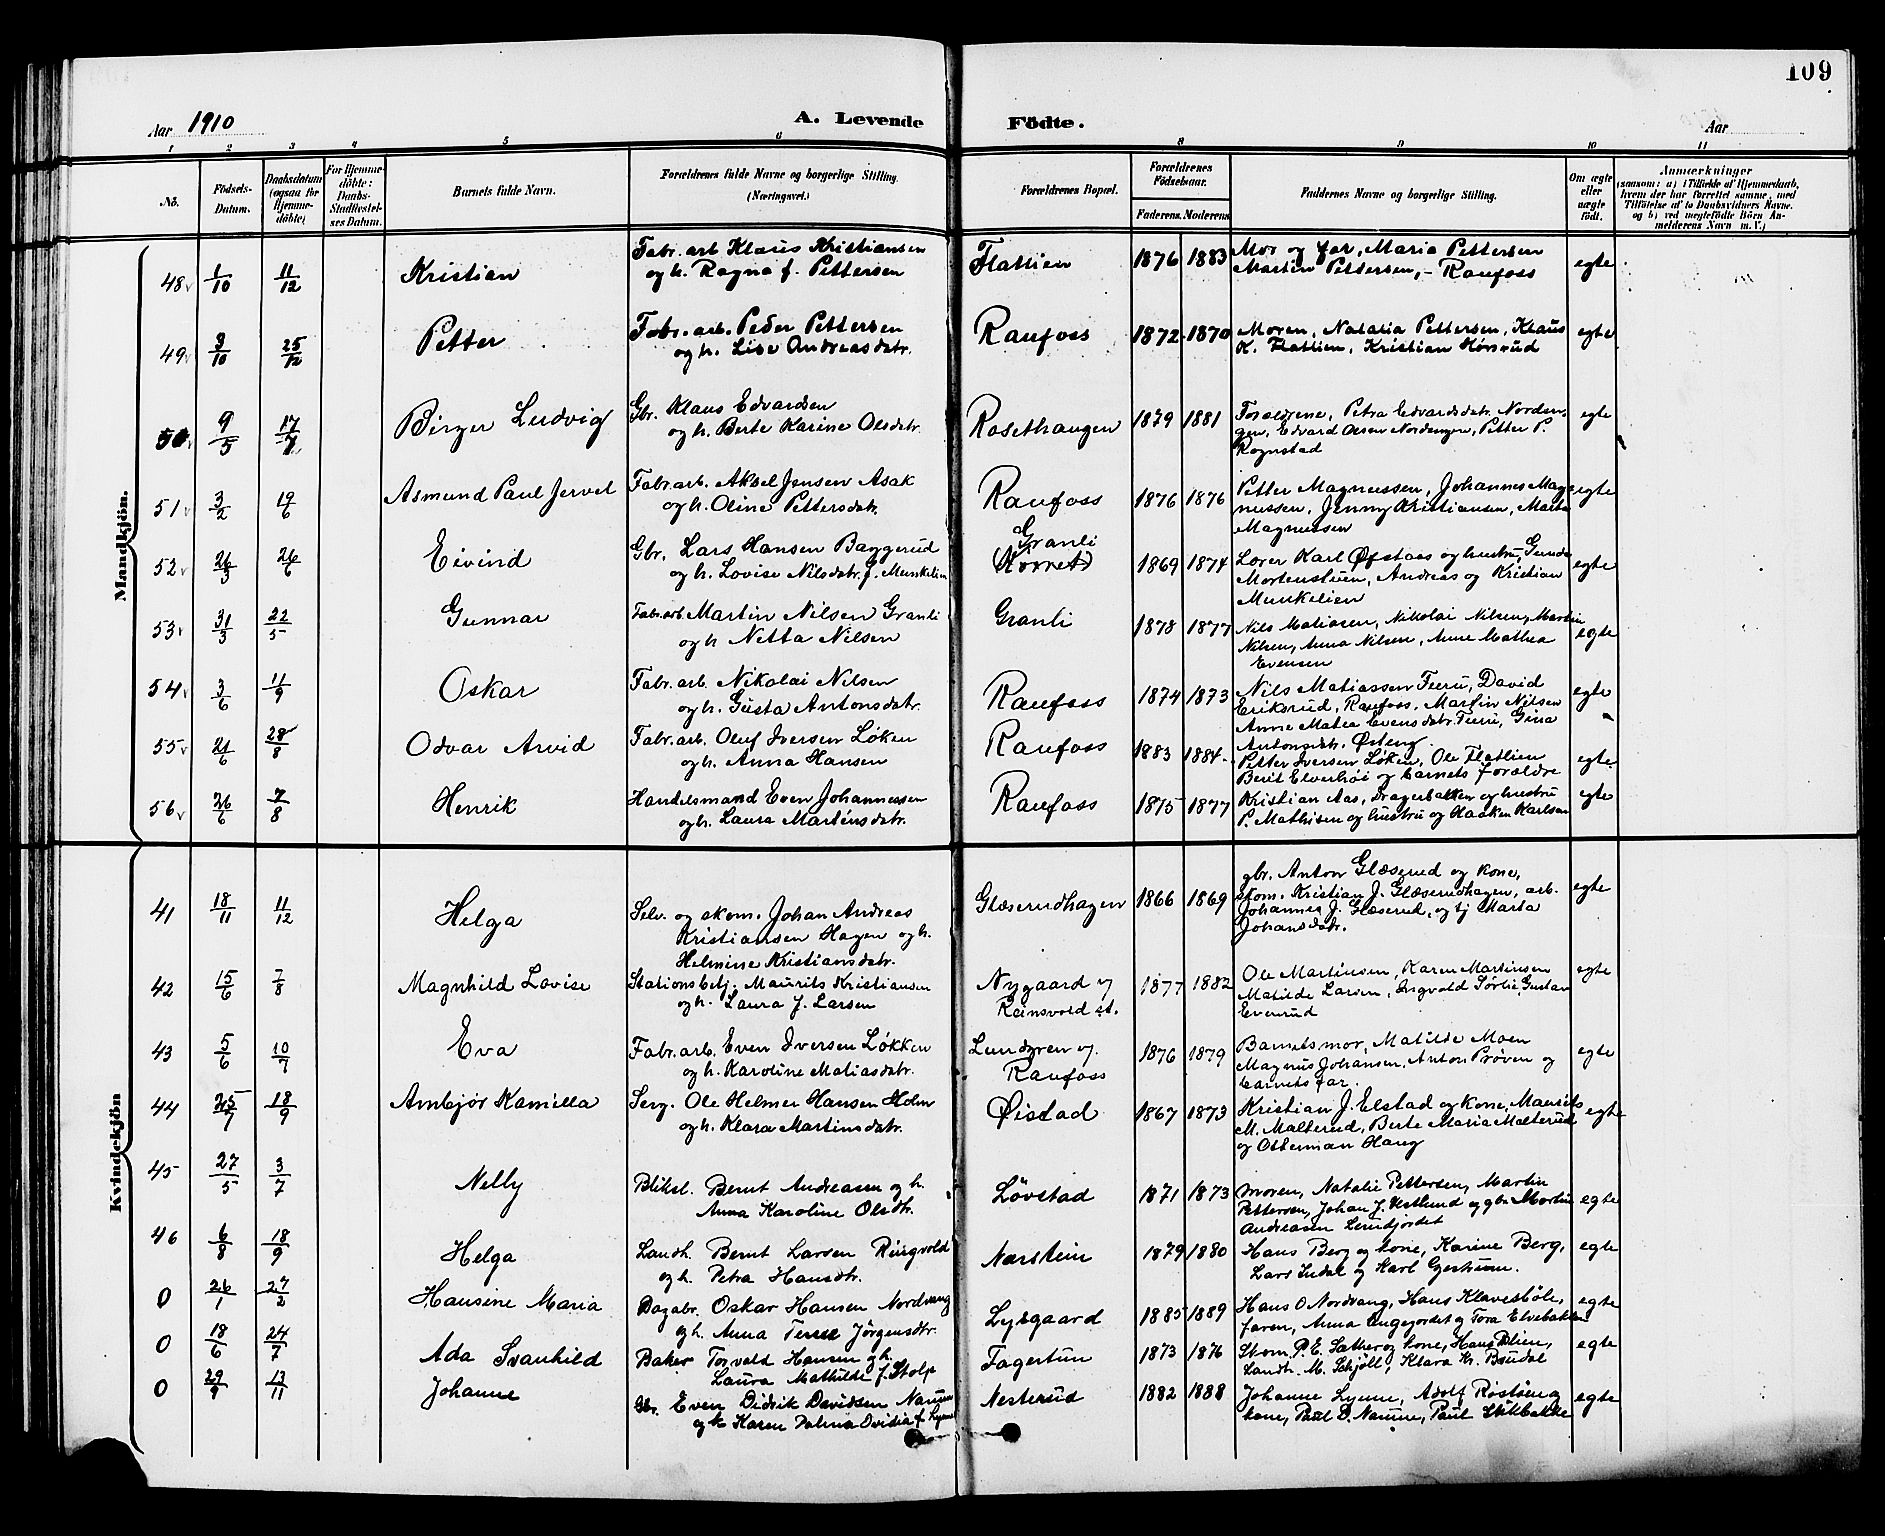 109
Aar 1910
A. Levende Födte.
Aar
1 2 3 4 5 6 8 9 10 11
No.
Födsels-Datum.
Daabsdatum (ogsaa for Hjemme-döbte)
For Hjemme-döbte: Daabs-Stadfæstel-ses Datum.
Barnets fulde Navn.
Forældrenes fulde Navne og borgerlige Stilling. (Næringsvei.)
Forældrenes Bopæl.
Forældrenes Födselsaar.
Faderens. Moderens.
Faddernes Navne og borgerlige Stilling.
Om ægte eller uægte födt.
Anmærkninger
(saasom: a) i Tilfælde af Hjemmedaab, hvem der har forrettet samme, med Tilföielse af to Daabsvidners Navne. og b) ved uægtefödte Börn An-melderens Navn m. V.)
Mandkjön.
48 1/10 11/12 Kristian
Fabr. arb Klaus Kristiansen
og h. Ragna f. Pettersen
Flattien 1876 1883
Mor og far, Maria Pettersen
Martin Pettersen, - Raufoss
egte
49 3/10 25/12 Petter
Fabr. arb. Peder Pettersen
og h. Lise Andreasdatr.
Raufoss 1872 1870
Moren, Natalia Pettersen, Klaus
K. Flattien, Kristian Hønsrud
egte
50 9/5 17/7 Birger Ludvig
Gbr. Klaus Edvardsen
og h. Berte Karine Olsdatr.
Rosethaugen 1879 1881
Forældrene, Petra Edvardsdatr. Norden-
gen, Edvard Olsen Nordengen, Petter P.
Rognstad
egte
51 3/2 19/6 Asmund Paul Jervel
Fabr. arb. Aksel Jensen Asak
og h. Oline Pettersdatr.
Raufoss 1876 1876
Petter Magnussen, Johannes Mag-
nussen, Jenny Kristiansen, Marta
Magnussen
egte
52 26/3 26/6 Eivind
Gbr. Lars Hansen Baggerud
og h. Lovise Nilsdatr. f. Munkelien
Granli
1869 1874
Lærer Karl Øfstaas og hustru, Gunda
Mortenstuen, Andreas og Kristian
Munkelien
egte
53 31/3 22/5 Gunnar
Fabr. arb. Martin Nilsen Granli
og h. Netta Nilsen
Granli 1878 1877
Nils Matiasen, Nikolai Nilsen, Martin
Nilsen, Anna Nilsen, Anne Mathea
Evensen
egte
54 3/6 11/9 Oskar
Fabr. arb. Nikolai Nilsen
og h. Gusta Antonsdatr.
Raufoss 1874 1873
Nils Matiassen Furu, David
Eriksrud, Raufoss, Martin Nilsen
Anne Matea Evensdatr. Furu, Gina
Antonsdtr. Østeng
egte
55 21/6 28/8 Odvar Arvid
Fabr. arb. Oluf Iversen Løken
og h. Anna Hansen
Raufoss 1883 1884
Petter Iversen Løken, Ole Flatlien
Berit Elverhøi og barnets forældre
egte
56 26/6 7/8 Henrik
Handelsmand Even Johannessen
og h. Laura Martinsdatr.
Raufoss 1875 1877
Kristian Aas, Dragerbakken og hustru
P. Mathisen og hustru og Haaken Karlsen
egte
Kvindekjön
41 18/11 11/12 Helga
Selv. og skom. Johan Andreas
Kristiansen Hagen og h.
Helmine Kristiansdatr.
Glæserudhagen 1866 1869
gbr. Anton Glæserud og kone,
skom. Kristian J. Glæserudhagen, arb.
Johannes J. Glæserud, og tj Marta
Johansdatr.
egte
42 15/6 7/8 Magnhild Lovise
Stationsbetj. Maurits Kristiansen
og h. Laura J. Larsen
Nygaard v/
Reinsvold st.
1877 1882
Ole Martinsen, Karen Martinsen
Matilde Larsen, Ingvald Sørlie, Gustav
Evenrud
egte
43 5/6 10/7 Eva
Fabr. arb. Even Iversen Løkken
og h. Karoline Matiasdatr.
Lundgren v/
Raufoss
1876 1879
Barnets mor, Matilde Moen
Magnus Johansen, Anton Prøven og
barnets far.
egte
44 25/7 18/9 Ambjør Kamilla
Serg. Ole Helmer Hansen Holm
og h. Klara Martinsdatr.
Øistad 1867 1873
Kristian J. Elstad og kone, Maurits
M. Malterud, Berte Maria Malterud
og Otterman Haug
egte
45 27/5 3/7 Nelly
Bliksl. Bernt Andreasen og h.
Anna Karoline Olsdtr.
Løvstad 1871 1873
moren, Natalie Pettersen, Martin
Pettersen, Johan J. Vestlund og gbr. Martin
Andreasen Lundjordet
egte
46 6/8 18/9 Helga
Landh. Bernt Larsen Ringvold
og h. Petra Hansdtr.
Narstein 1879 1880
Hans Berg og kone, Karine Berg,
Lars Indal og Karl
egte
0 26/1 27/2 Hansine Maria
Bagabr. Oskar Hansen Nordvang
og h. Anna Jørgensdtr.
Lysgaard 1885 1889
Hans O Nordvang, Hans Klavesbøle,
faren, Anna Engejordet og Tora Elvebakken
egte
0 18/6 24/7 Ada Svanhild
Baker Torvald Hansen og h.
Laura Mathilde f. Stolp
Fagertun 1873 1876
Skom. P. E. Sæther og kone, Hans Blien,
Landh. M. Schjøll, Klara Kr.
egte
0 29/9 13/11 Johanne
Gbr. Even Didrik Davidsen
og h. Karen
Nesterud 1882 1888
Johanne Lynne, Adolf
kone, Paul D. Paul Skilbakke
egte